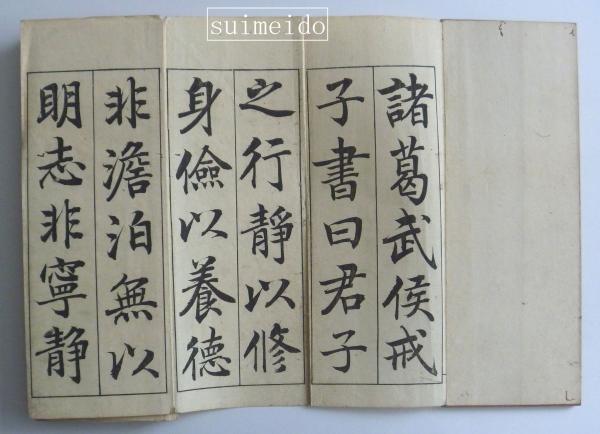 suimeido
諸葛武侯戒
子書曰君子
之行靜以修
身儉以養德
非澹泊無以
明志非寧静